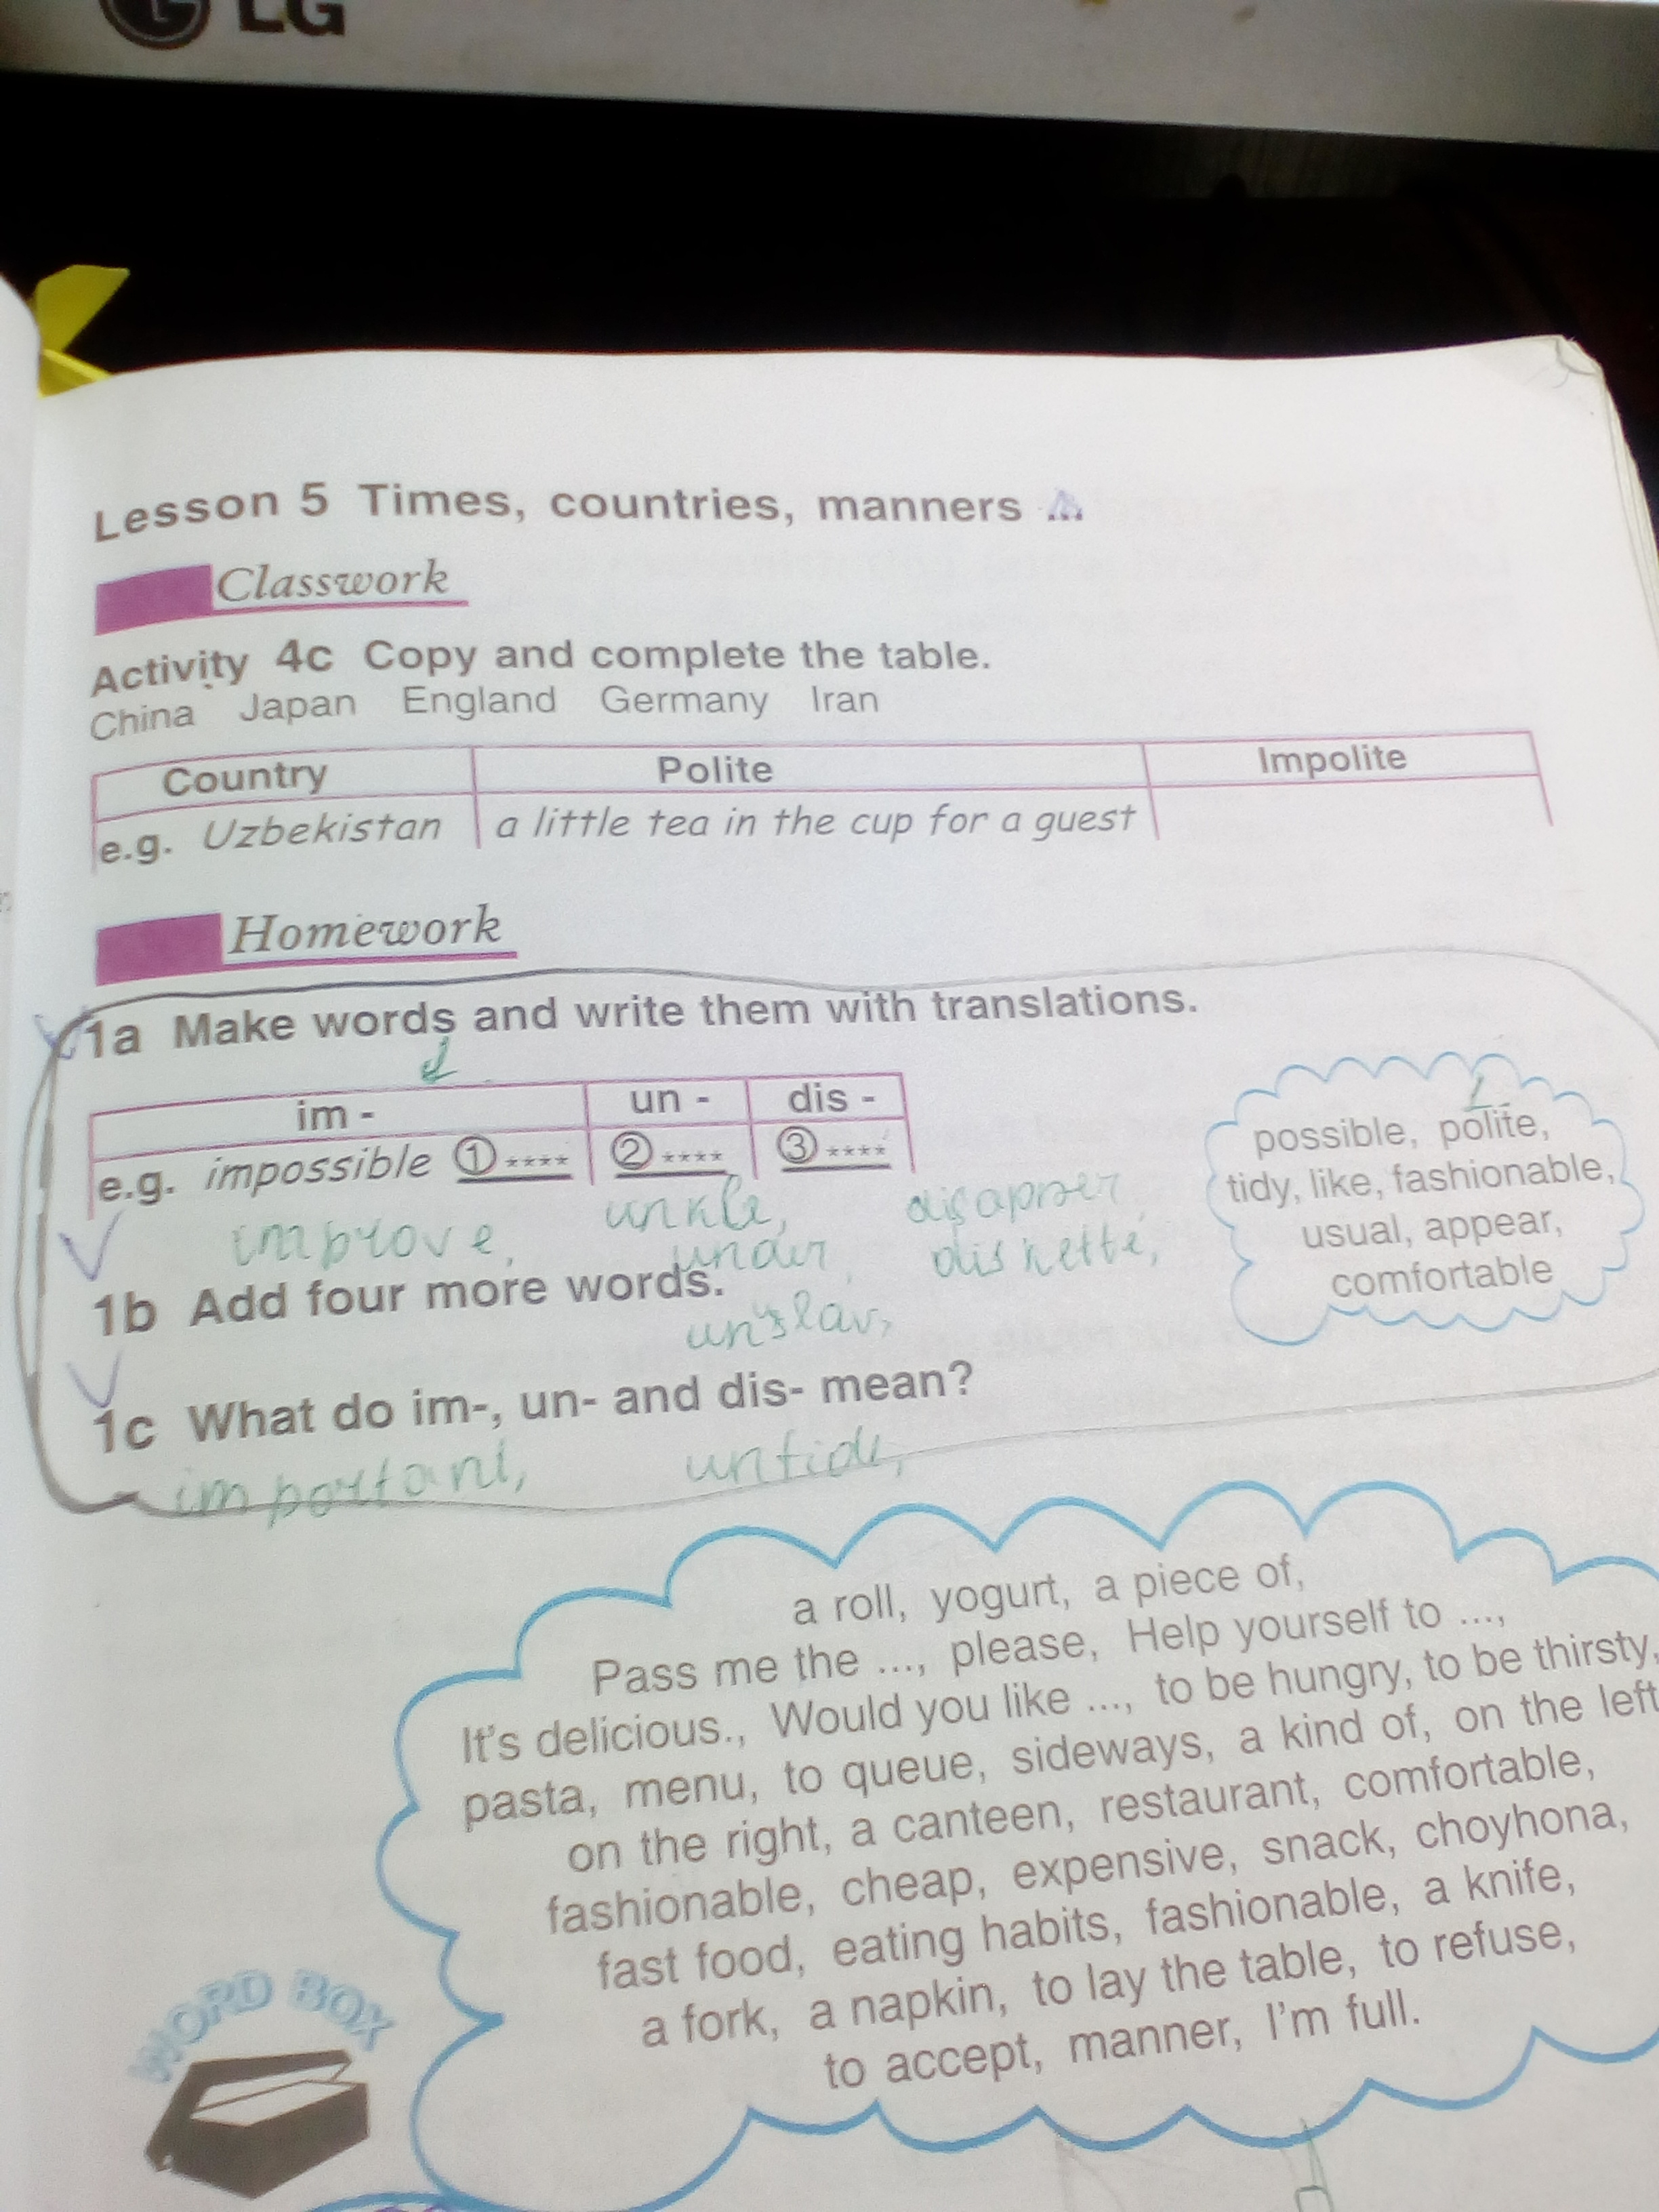 LG
Lesson 5 Times, countries, manners
Classwork
Activity 4c Copy and complete the table.
China Japan England Germany Iran
Country Polite Impolite
e.g. Uzbekistan a little tea in the cup for a guest
Homework
1a Make words and write them with translations.
im - un - dis -
e.g. impossible ① **** ② **** ③ ****
possible, polite,
tidy, like, fashionable,
usual, appear,
comfortable
improve, unkle,
under, diskette,
1b Add four more words.
1c What do im-, un- and dis- mean?
important,
a roll, yogurt, a piece of,
Pass me the ..., please, Help yourself to ...,
It's delicious., Would you like ..., to be hungry, to be thirsty,
pasta, menu, to queue, sideways, a kind of, on the left
on the right, a canteen, restaurant, comfortable,
fashionable, cheap, expensive, snack, choyhona,
fast food, eating habits, fashionable, a knife,
a fork, a napkin, to lay the table, to refuse,
to accept, manner, I'm full.
WORD BOX